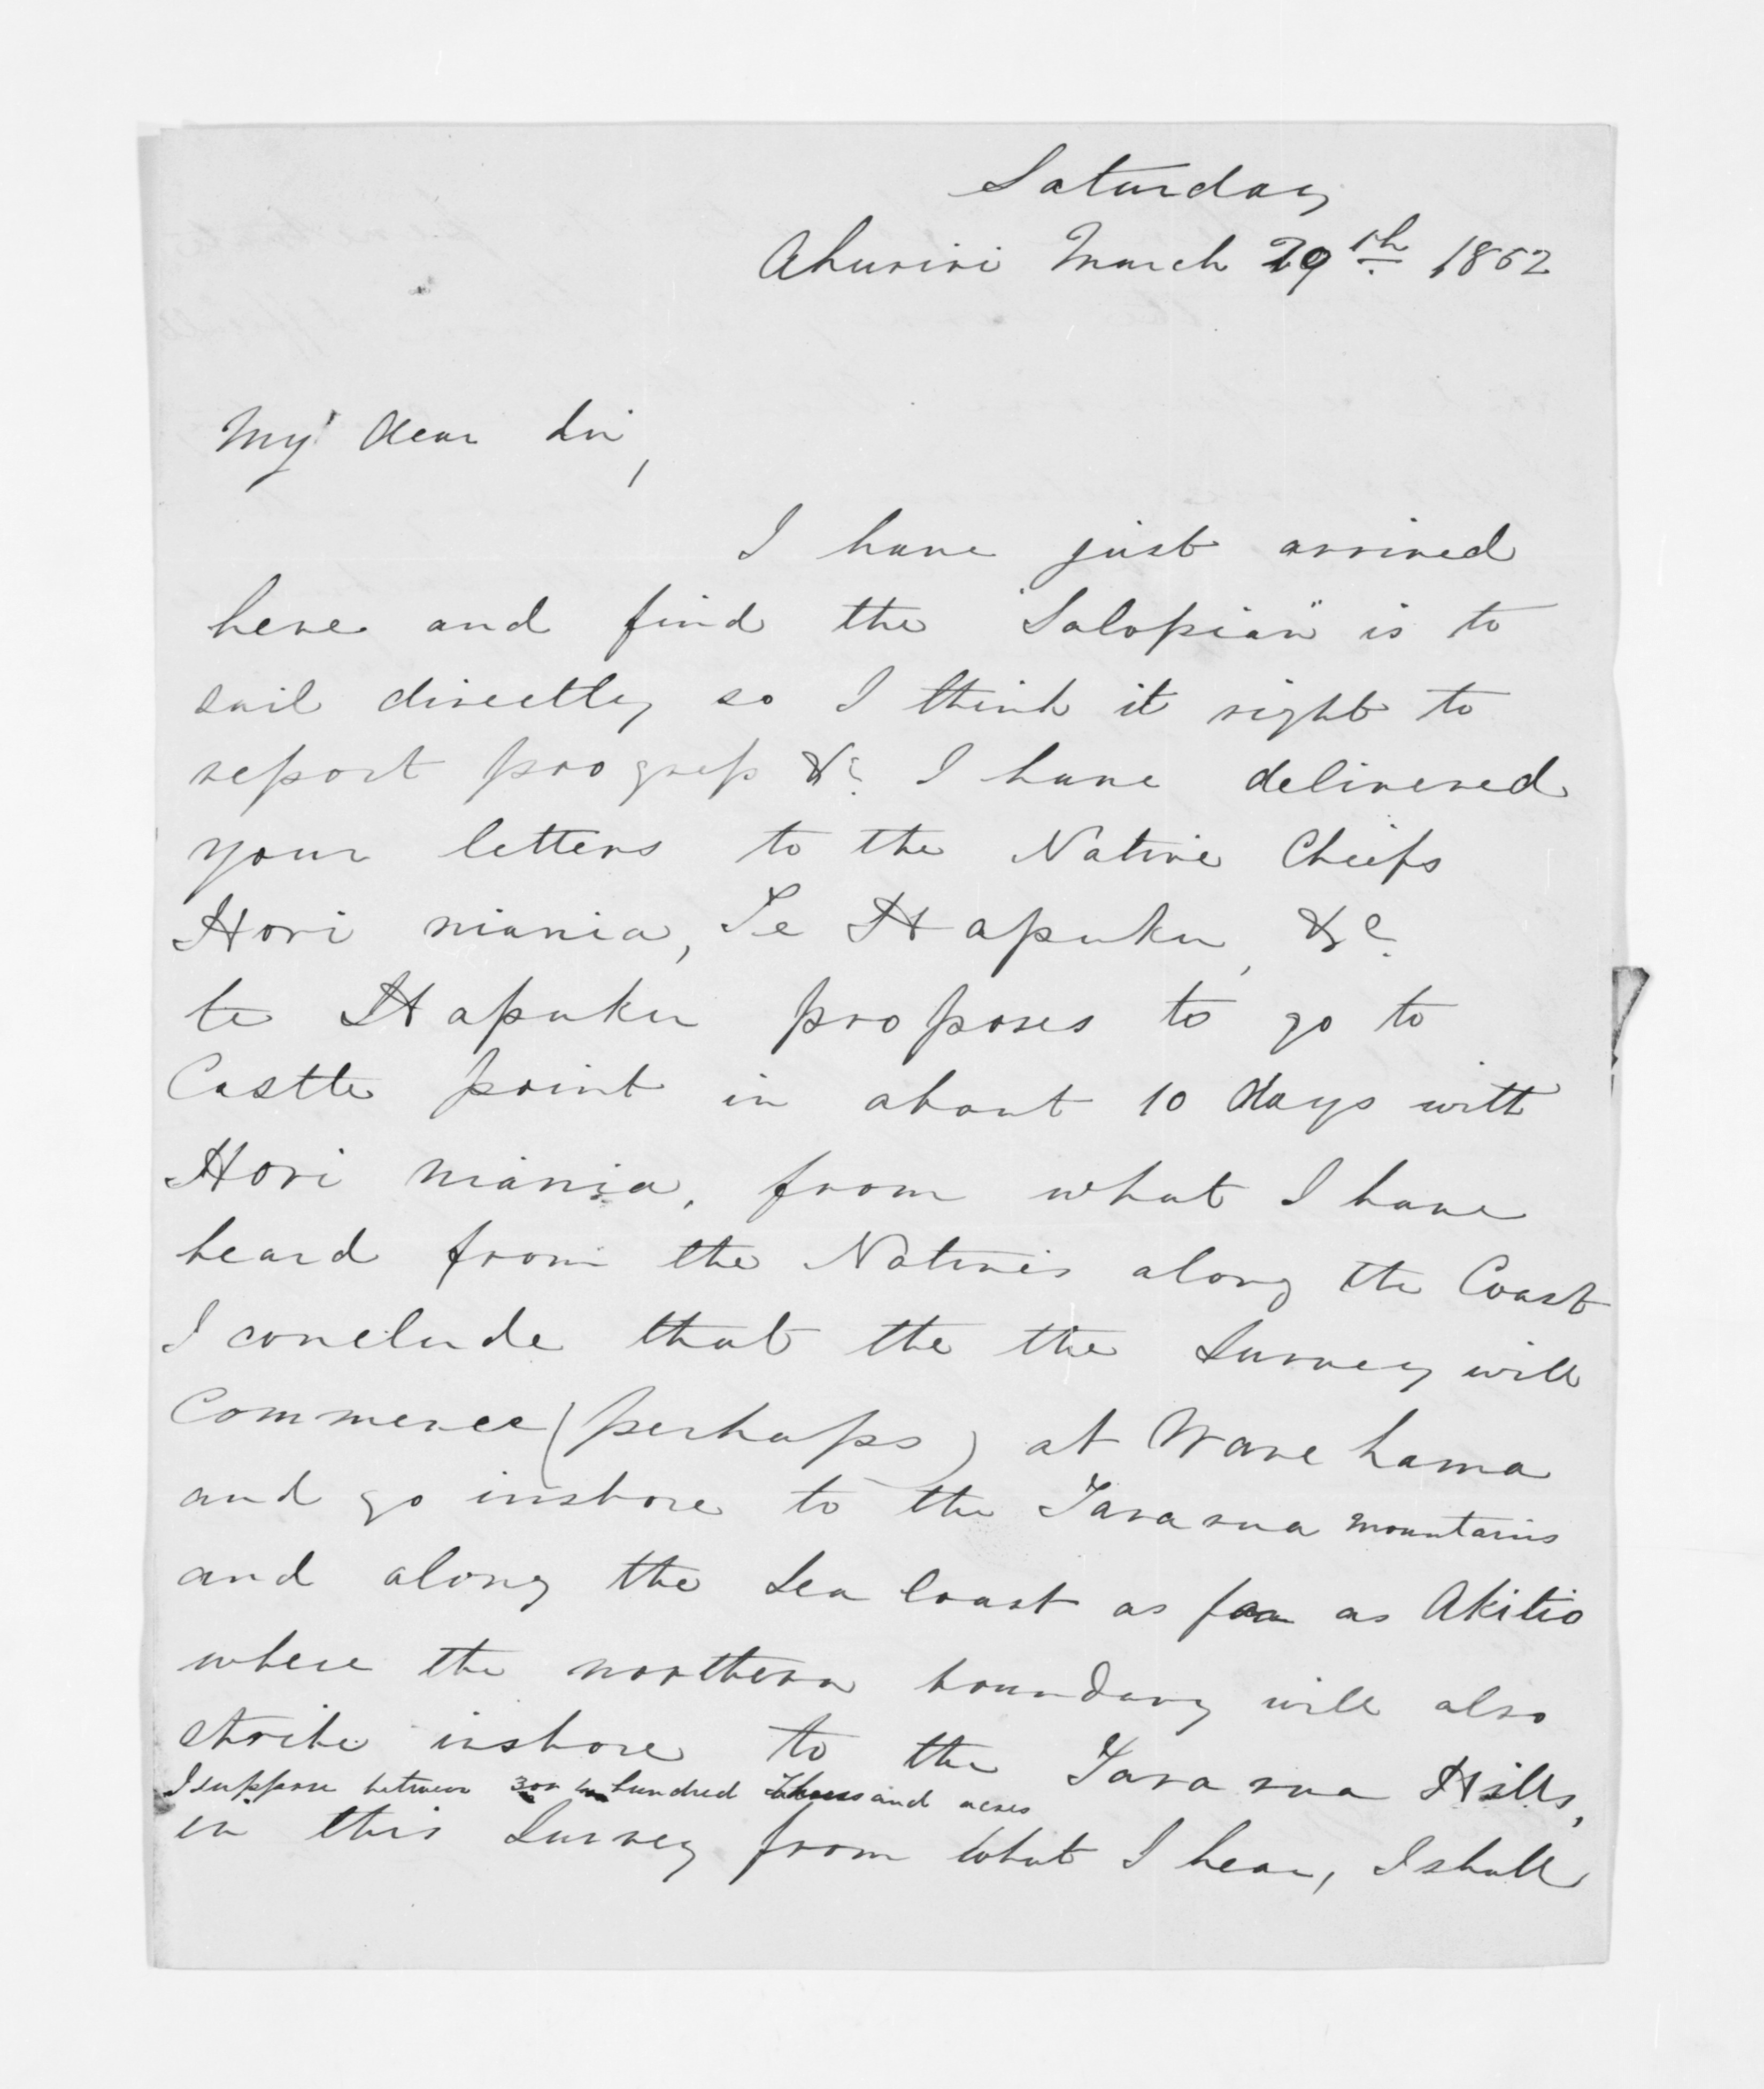 Saturday
Ahuriri March 29th 1852
My dear Sir,
I have just arrived
here and find the "Salopian" is to
sail directly so I think it right to
report progress &c. I have delivered
your letters to the Native Chiefs
Hori niania, Te Hapuku, &c.
te Hapuku proposes to go to
Castle point in about 10 days with
Hori niania, from what I have
heard from the Natives along the Coast
I conclude that the the Survey will
Commence (perhaps) at Warehama
and go inshore to the Tararua mountains
and along the Sea Coast as far as Akitio
where the northern boundary will also
strike inshore to the Tararua Hills,
I suppose between 3 or hundred thousand acres
in this Survey from what I hear, I shall